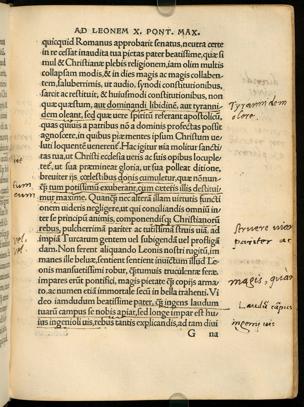 AD LEONEM X. PONT. MAX.
quicquid Romanus approbarit senatus, neutra certe
in re cessat inaudita tua pietas pater beatissime, quæ si
mul & Christianæ plebis religionem, iam olim multis
collapsam modis, & in dies magis ac magis collaben-
tem, saluberrimis, ut audio, synodi constitutionibus,
sarcit ac restituit, & huiusmodi constitutionibus, non
quæ quæstum, aut dominandi libidinē, aut tyranni-
dem oleant, sed quæ uere spiritū referant apostolicū,
quas quiuis a patribus nō a dominis profectas possit
agnoscere, in quibus piæ mentes ipsum Christum ue-
luti loquentē uenerent.
tas tua, ut Christi ecclesia ueris ac suis opibus locuple-
tet, ut sua præmineat gloria, ut sua polleat ditione,
breuiter iis cœlestibus donis cumuletur, quæ
cū tum potissimū exuberant, cum cæteris illis destitui
mur maxime.
onem uideris negligere, ut qui conciliandis omniū in
ter se principū animis, componendisque Christianorū
rebus, pulcherrimā pariter ac tutissimā struis uiā, ad
impia Turcarum gentem uel subigendā uel profligā
dam. Non ferent aliquando Leonis nostri rugitū, im-
manes ille beluæ, sentient sentient inuictum illud Le-
onis mansuetissimi robur,
impares erūt pontifici, magis pietate quam copiis arma-
to, ac numen etiā immortale secū in bella trahenti. Vi
deo iamdudum beatissime pater, quam ingens laudum
tuarū campus se nobis apiat, sed longe impar est hu-
ius ingenioli uis, rebus tantis explicandis, ad tam diui
G na
Tyrannidem
olere.
Struere uiam
pariter ac
magis, quam
Laudū campus
ingenij uis